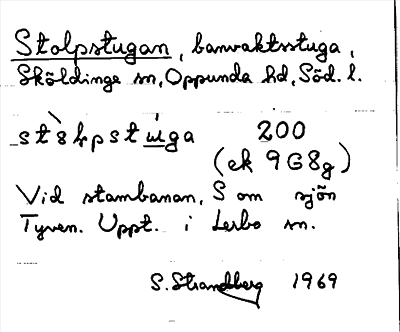 Stolpstugan, banvaktsstuga,
Sköldinge sn, Oppunda hd, Söd. l.
200
(ek 9G8g)
Vid stambanan, S om sjön
Tyven. Uppt. i Lerbo sn.
S. Strandberg 1969